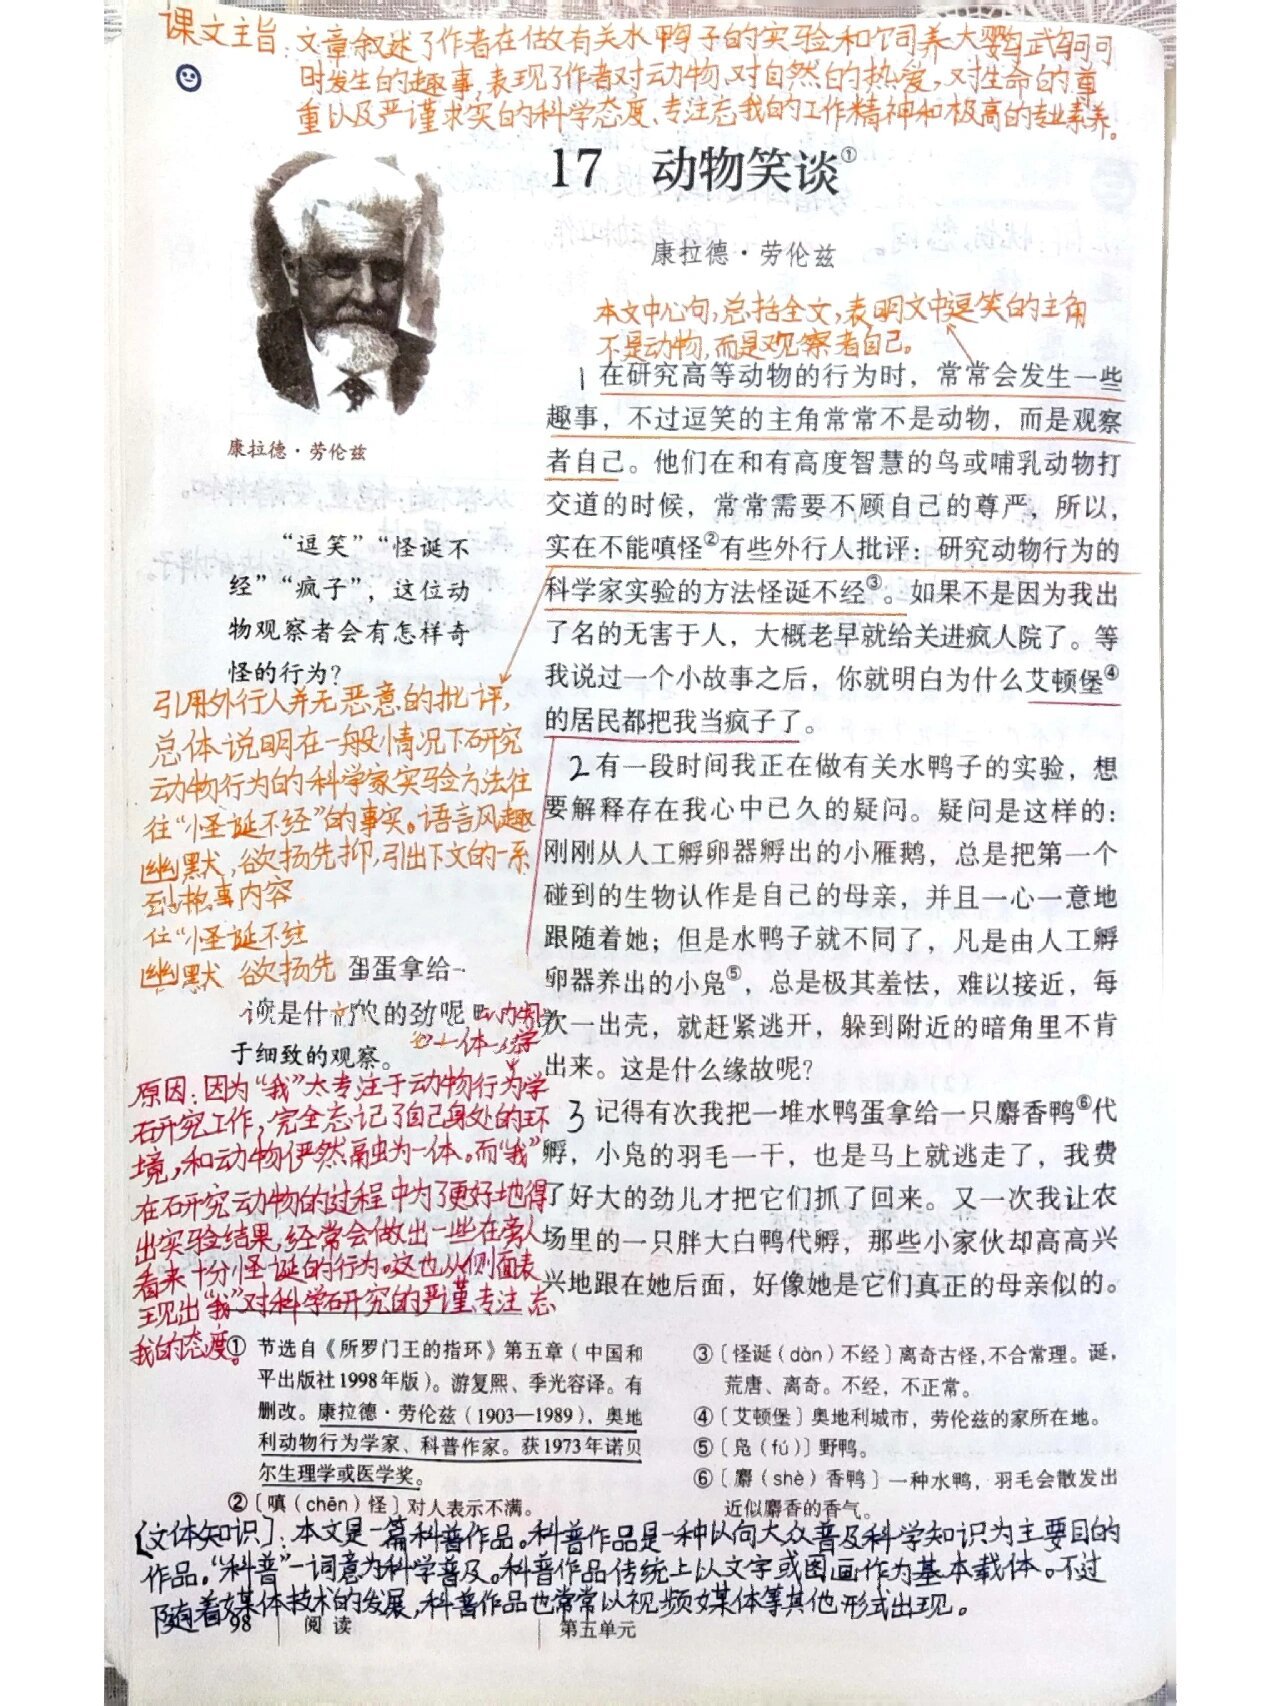 课文主旨:文章叙述了作者在做有关水鸭子的实验和饲养大鹦鹉可可
时发生的趣事,表现了作者对动物、对自然的热爱,对生命的尊
重以及严谨求实的科学态度、专注忘我的工作精神和极高的专业素养。
17 动物笑谈①
康拉德·劳伦兹
康拉德·劳伦兹
“逗笑”“怪诞不
经”“疯子”,这位动
物观察者会有怎样奇
怪的行为?
本文中心句,总括全文,表明文中逗笑的主角
不是动物,而是观察者自己。
1 在研究高等动物的行为时,常常会发生一些
趣事,不过逗笑的主角常常不是动物,而是观察
者自己。他们在和有高度智慧的鸟或哺乳动物打
交道的时候,常常需要不顾自己的尊严,所以,
实在不能嗔怪②有些外行人批评:研究动物行为的
科学家实验的方法怪诞不经③。如果不是因为我出
了名的无害于人,大概老早就给关进疯人院了。等
我说过一个小故事之后,你就明白为什么艾顿堡④
的居民都把我当疯子了。
2 有一段时间我正在做有关水鸭子的实验,想
要解释存在我心中已久的疑问。疑问是这样的:
刚刚从人工孵卵器孵出的小雁鹅,总是把第一个
碰到的生物认作是自己的母亲,并且一心一意地
跟随着她;但是水鸭子就不同了,凡是由人工孵
卵器养出的小凫⑤,总是极其羞怯,难以接近,每
次一出壳,就赶紧逃开,躲到附近的暗角里不肯
出来。这是什么缘故呢?
3 记得有次我把一堆水鸭蛋拿给一只麝香鸭⑥代
孵,小凫的羽毛一干,也是马上就逃走了,我费
了好大的劲儿才把它们抓了回来。又一次我让农
场里的一只胖大白鸭代孵,那些小家伙却高高兴
兴地跟在她后面,好像她是它们真正的母亲似的。
引用外行人并无恶意的批评,
总体说明在一般情况下研究
动物行为的科学家实验方法往
往“怪诞不经”的事实。语言风趣
幽默,欲扬先抑,引出下文的一系
列故事内容
往“怪诞不经
幽默 欲扬先 蛋蛋拿给
是什 的的劲呢
于细致的观察。
原因:因为“我”太专注于动物行为学
研究工作,完全忘记了自己身处的环
境,和动物俨然融为一体。而“我”
在研究动物的过程中为了更好地得
出实验结果,经常会做出一些在旁人
看来十分怪诞的行为。这也从侧面表
现出“我”对科学研究的严谨、专注、忘
我的态度。
① 节选自《所罗门王的指环》第五章(中国和
平出版社1998年版)。游复熙、季光容译。有
删改。康拉德·劳伦兹(1903—1989),奥地
利动物行为学家、科普作家。获1973年诺贝
尔生理学或医学奖。
② 〔嗔(chēn)怪〕对人表示不满。
③ 〔怪诞(dàn)不经〕离奇古怪,不合常理。诞,
荒唐、离奇。不经,不正常。
④ 〔艾顿堡〕奥地利城市,劳伦兹的家所在地。
⑤ 〔凫(fú)〕野鸭。
⑥ 〔麝(shè)香鸭〕一种水鸭,羽毛会散发出
近似麝香的香气。
〔文体知识〕:本文是一篇科普作品。科普作品是一种以向大众普及科学知识为主要目的
作品。“科普”一词意为科学普及。科普作品传统上以文字或图画作为基本载体。不过
随着媒体技术的发展,科普作品也常常以视频媒体等其他形式出现。
98 阅读 第五单元